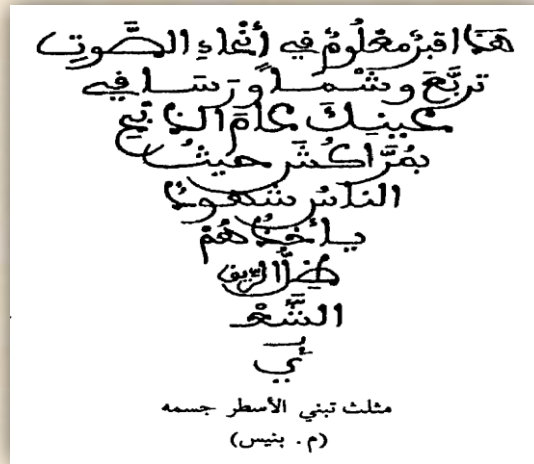 هَذَا قَبْرٌ مَعْلُومٌ فِي أَنْحَاءِ الصَّوْتِ
تربَّعَ وشْماً ورَسَا في
عينيكَ عامَ
بمُرَّاكُش حيثُ
الناسُ شهودٌ
يأخذُهُمْ
الشَّعْـ
ـبـ
ي
مثلث تبني الأسطر جسمه
(م . بنيس)